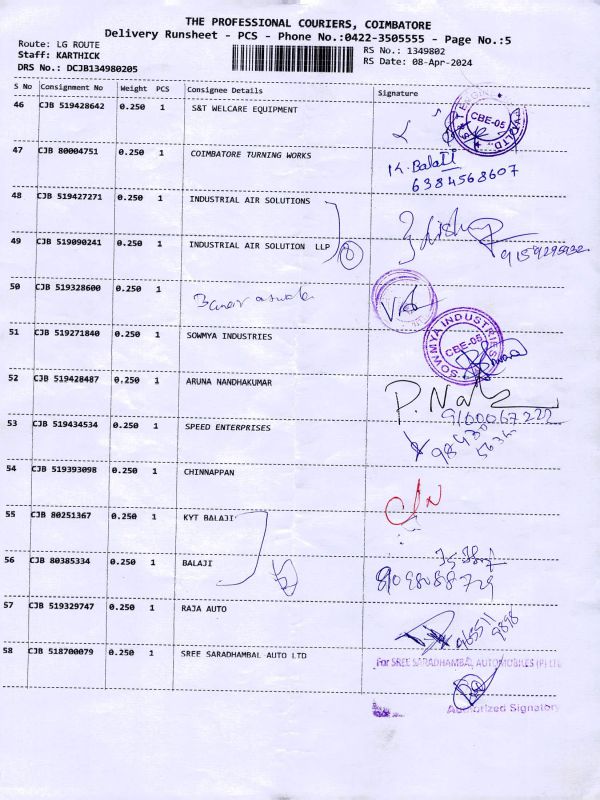 THE PROFESSIONAL COURIERS, COIMBATORE
Delivery Runsheet - PCS - Phone No.:0422-3505555 - Page No.:5
Route: LG ROUTE
RS No.: 1349802
Staff: KARTHICK
RS Date: 08-Apr-2024
DRS No.: DCJB134980205
S No Consignment No Weight PCS Consignee Details Signature
46 CJB 519428642 0.250 1 S&T WELCARE EQUIPMENT
CBE-05
47 CJB 80004751 0.250 1 COIMBATORE TURNING WORKS
K. Balaji
6384568607
48 CJB 519427271 0.250 1 INDUSTRIAL AIR SOLUTIONS
49 CJB 519090241 0.250 1 INDUSTRIAL AIR SOLUTION LLP
50 CJB 519328600 0.250 1
51 CJB 519271840 0.250 1 SOWMYA INDUSTRIES
SOWMYA INDUSTRIES
CBE-05
52 CJB 519428487 0.250 1 ARUNA NANDHAKUMAR
9100067222
53 CJB 519434534 0.250 1 SPEED ENTERPRISES
54 CJB 519393098 0.250 1 CHINNAPPAN
55 CJB 80251367 0.250 1 KYT BALAJI
56 CJB 80385334 0.250 1 BALAJI
57 CJB 519329747 0.250 1 RAJA AUTO
58 CJB 518700079 0.250 1 SREE SARADHAMBAL AUTO LTD
For SREE SARADHAMBAL AUTOMOBILES (P) LTD
Authorized Signatory